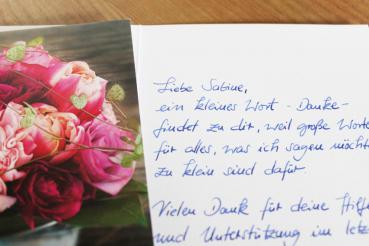 Liebe Sabine,
ein kleines Wort - Danke -
findet zu dir, weil große Worte
für alles, was ich sagen möcht
zu klein sind dafür
Vielen Dank für deine Hilf
und Unterstützung im letz